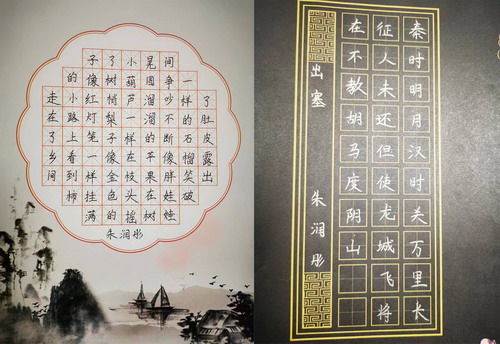 走在了乡间
的小路上看到柿
子像红灯笼一样挂满
了树梢梨子像金色的
小葫芦一样左枝头摇
晃圆溜溜的苹果在树
间争吵不断像胖娃娃
一样的石榴笑破
了肚皮露出
朱润彤
秦时明月汉时关万里长
征人未还但使龙城飞将
在不教胡马度阴山
出塞 朱润彤